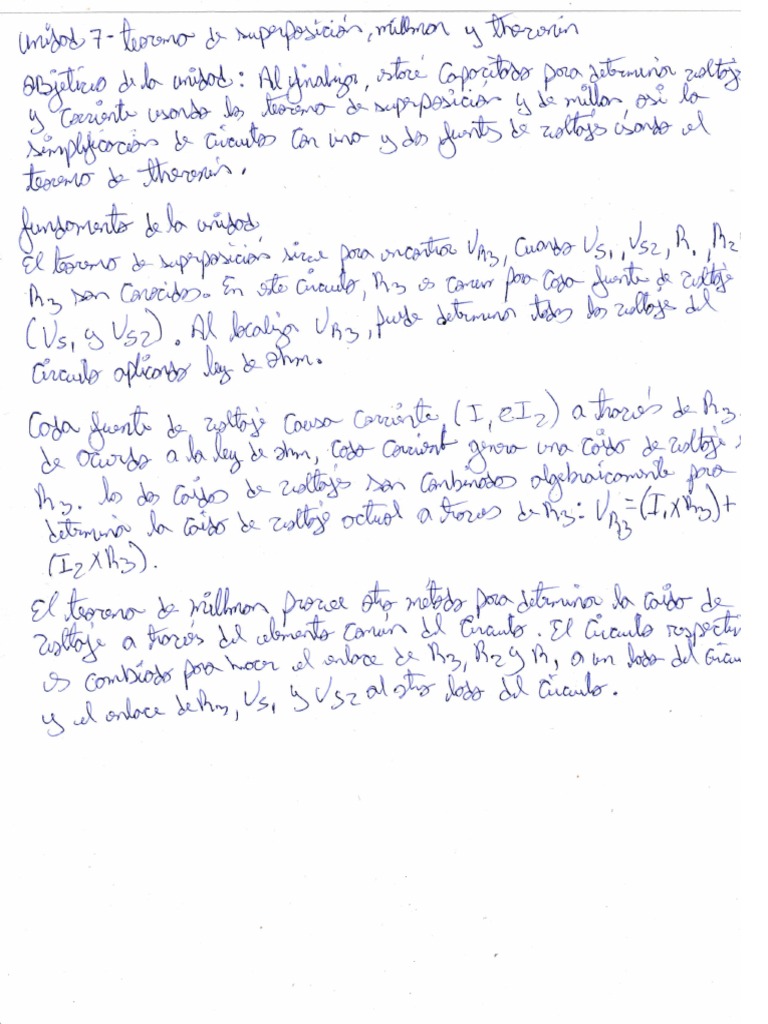 Unidad 7 - teorema de superposición, millman y thevenin
Objetivo de la unidad: Al finalizar, estaré capacitado para determinar voltaje
y corriente usando los teorema de superposición y de millan, asi la
simplificación de circuitos con una y dos fuentes de voltajes usando el
teorema de thevenin.
fundamento de la unidad
El teorema de superposición sirve para encontrar VR3, cuando VS1, VS2, R1, R2
R3 son conocidos. En este circuito, R3 es comun para cada fuente de voltaje
(VS1 y VS2). Al localizar VR3, puede determinar todos los voltajes del
circuito aplicando ley de ohm.
Cada fuente de voltaje causa corriente (I1 e I2) a través de R3.
de acuerdo a la ley de ohm, cada corrient genera una caída de voltaje
R3. los dos caídas de voltajes son combinados algebraicamente para
determinar la caida de voltaje actual a traves de R3: VR3=(I1XR3)+
(I2XR3).
El teorema de millman provee otro método para determinar la caida de
voltaje a través del elemento común del circuito. El circuito respectiv
es cambiado para hacer el enlace de R3, R2 y R1 a un lado del circu
y el enlace de R3, VS1 y VS2 al otro lado del circuito.